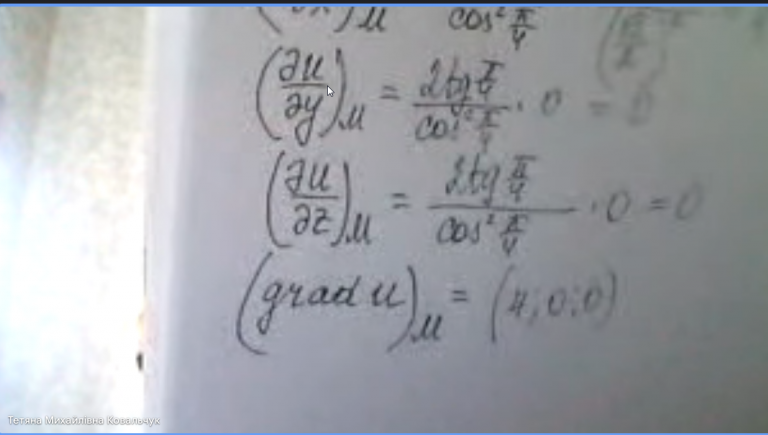 (∂x)_M cos² π/4
(∂u/∂y)_M = 2tg π/4 / cos² π/4 · 0 = 0
(∂u/∂z)_M = 2tg π/4 / cos² π/4 · 0 = 0
(grad u)_M = (4; 0; 0)
Тетяна Михайлівна Ковальчук